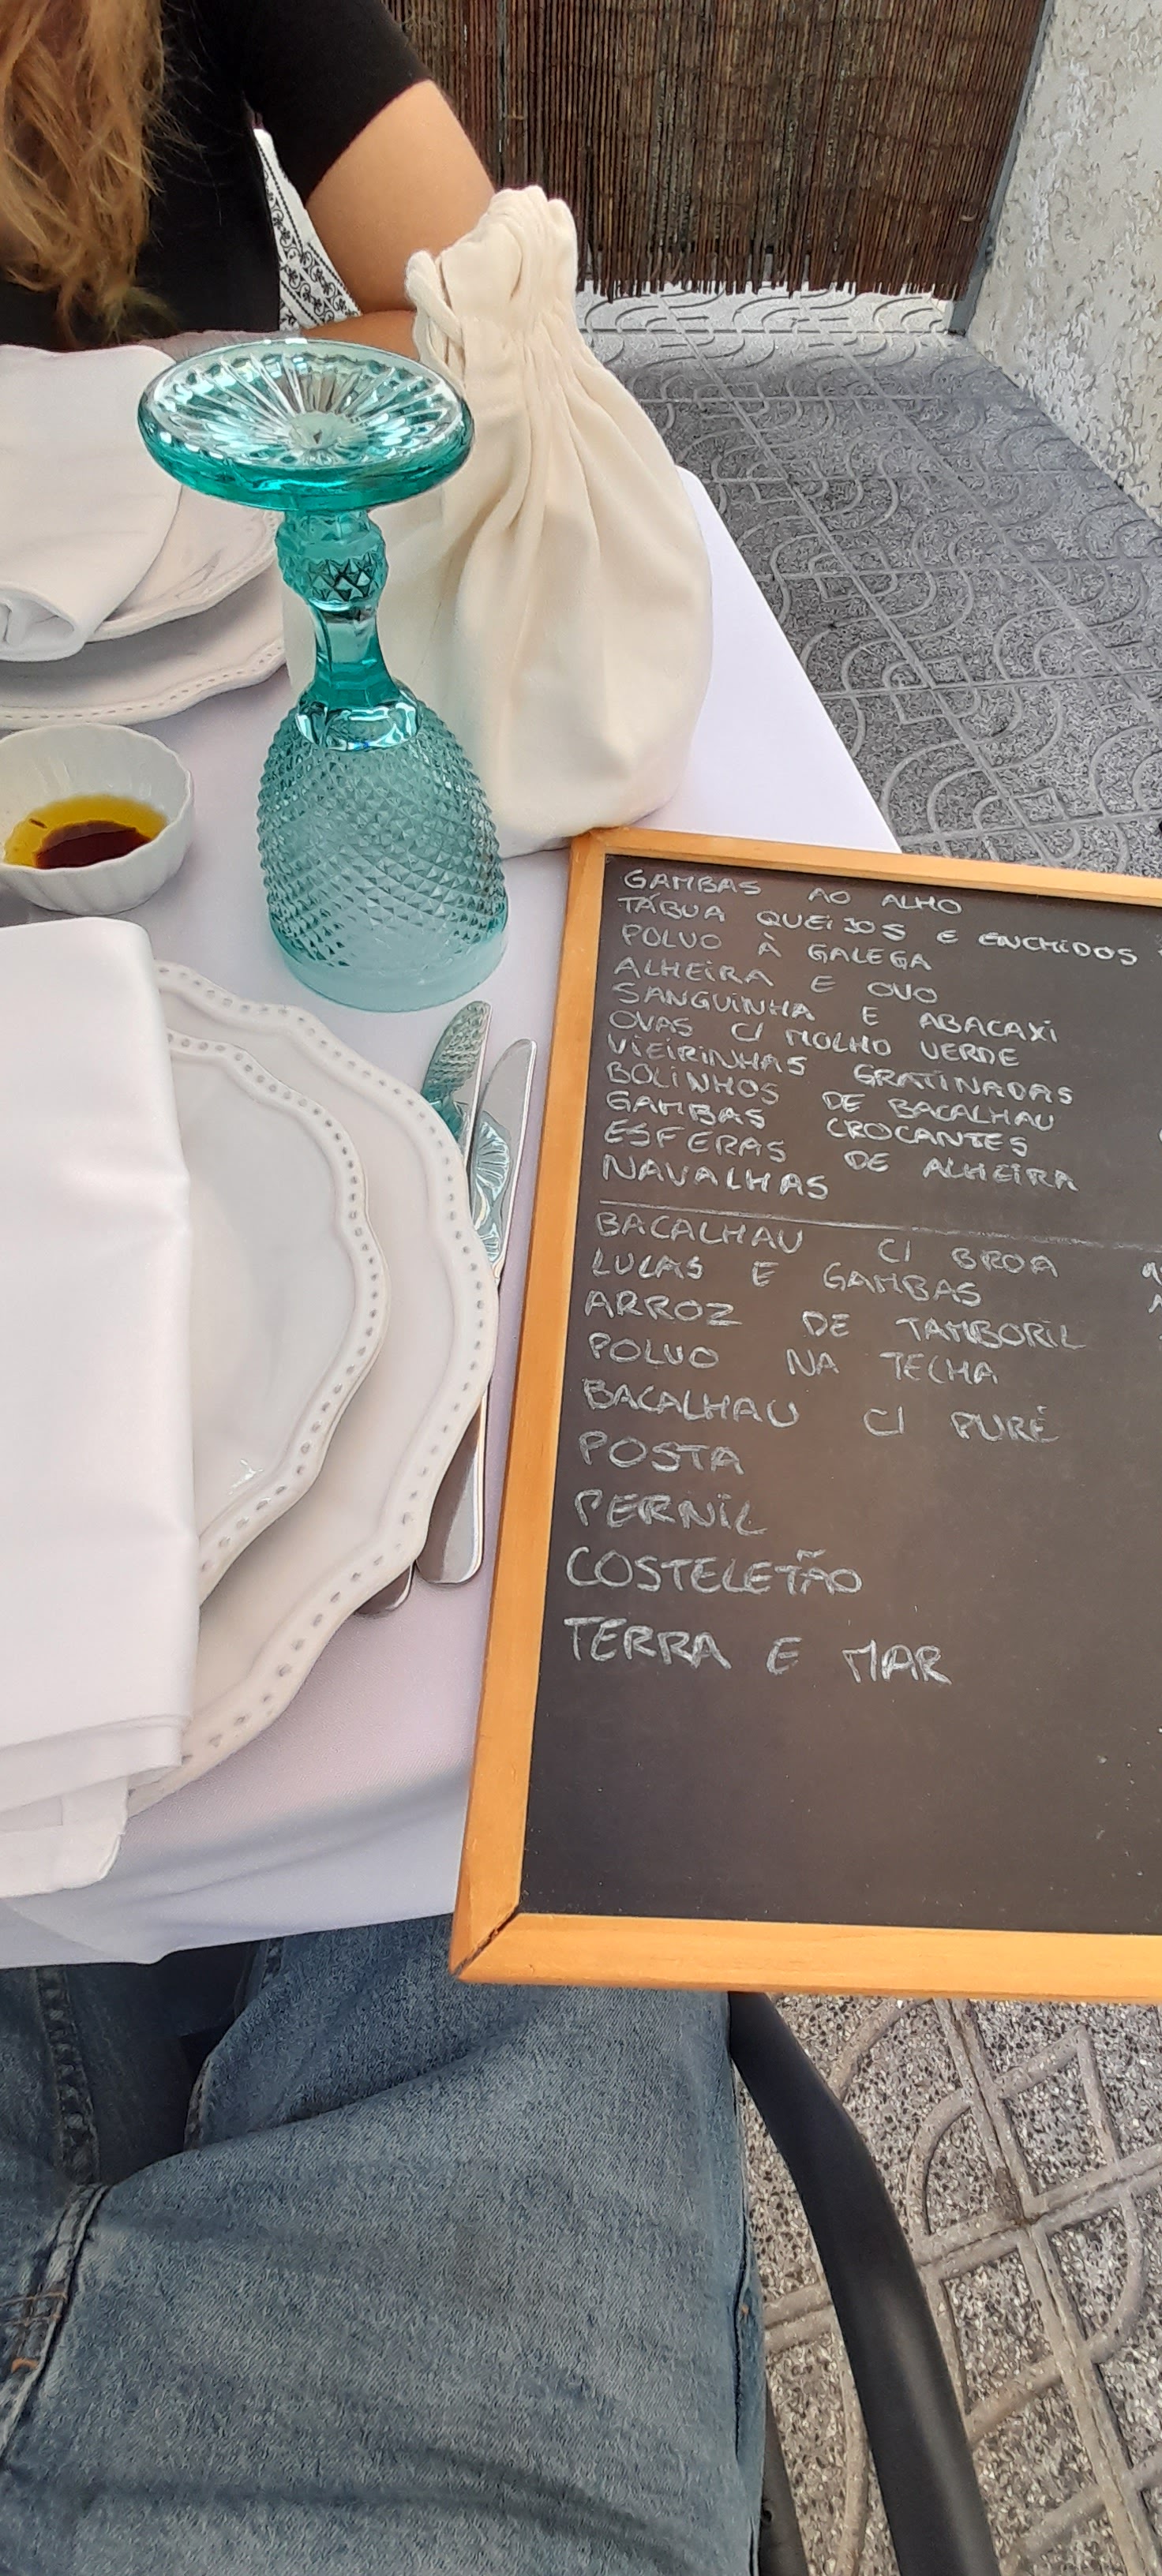 GAMBAS AO ALHO
TÁBUA QUEIJOS E ENCHIDOS
POLVO À GALEGA
ALHEIRA E OVO
SANGUINHA E ABACAXI
OVAS C/ MOLHO VERDE
VIEIRINHAS GRATINADAS
BOLINHOS DE BACALHAU
GAMBAS CROCANTES
ESFERAS DE ALHEIRA
NAVALHAS
BACALHAU C/ BROA
LULAS E GAMBAS
ARROZ DE TAMBORIL
POLVO NA TECHA
BACALHAU C/ PURÉ
POSTA
PERNIL
COSTELETÃO
TERRA E MAR